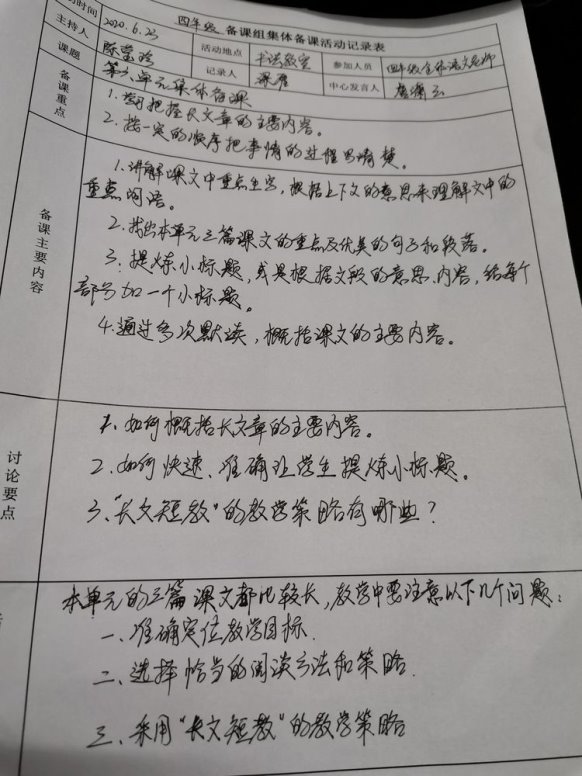 四年级 备课组集体备课活动记录表
动时间 2020.6.23 活动地点 书法教室 参加人员 四年级全体语文老师
主持人 记录人 中心发言人
课题 第六单元集体备课
备课重点
1. 把握长文章的主要内容。
2. 按一定的顺序把事情的过程写清楚。
备课主要内容
1.讲解课文中重点生字,根据上下文的意思来理解文中的
重点词语。
2.找出本单元三篇课文的重点及优美的句子和段落。
3.提炼小标题,或是根据文段的意思、内容,给每个
部分加一个小标题。
4.通过多次默读,概括课文的主要内容。
讨论要点
1.如何概括长文章的主要内容。
2.如何快速、准确让学生提炼小标题。
3.“长文短教”的教学策略有哪些?
本单元的三篇课文都比较长,教学中要注意以下几个问题:
一、准确定位教学目标.
二、选择恰当的阅读方法和策略.
三、采用“长文短教”的教学策略